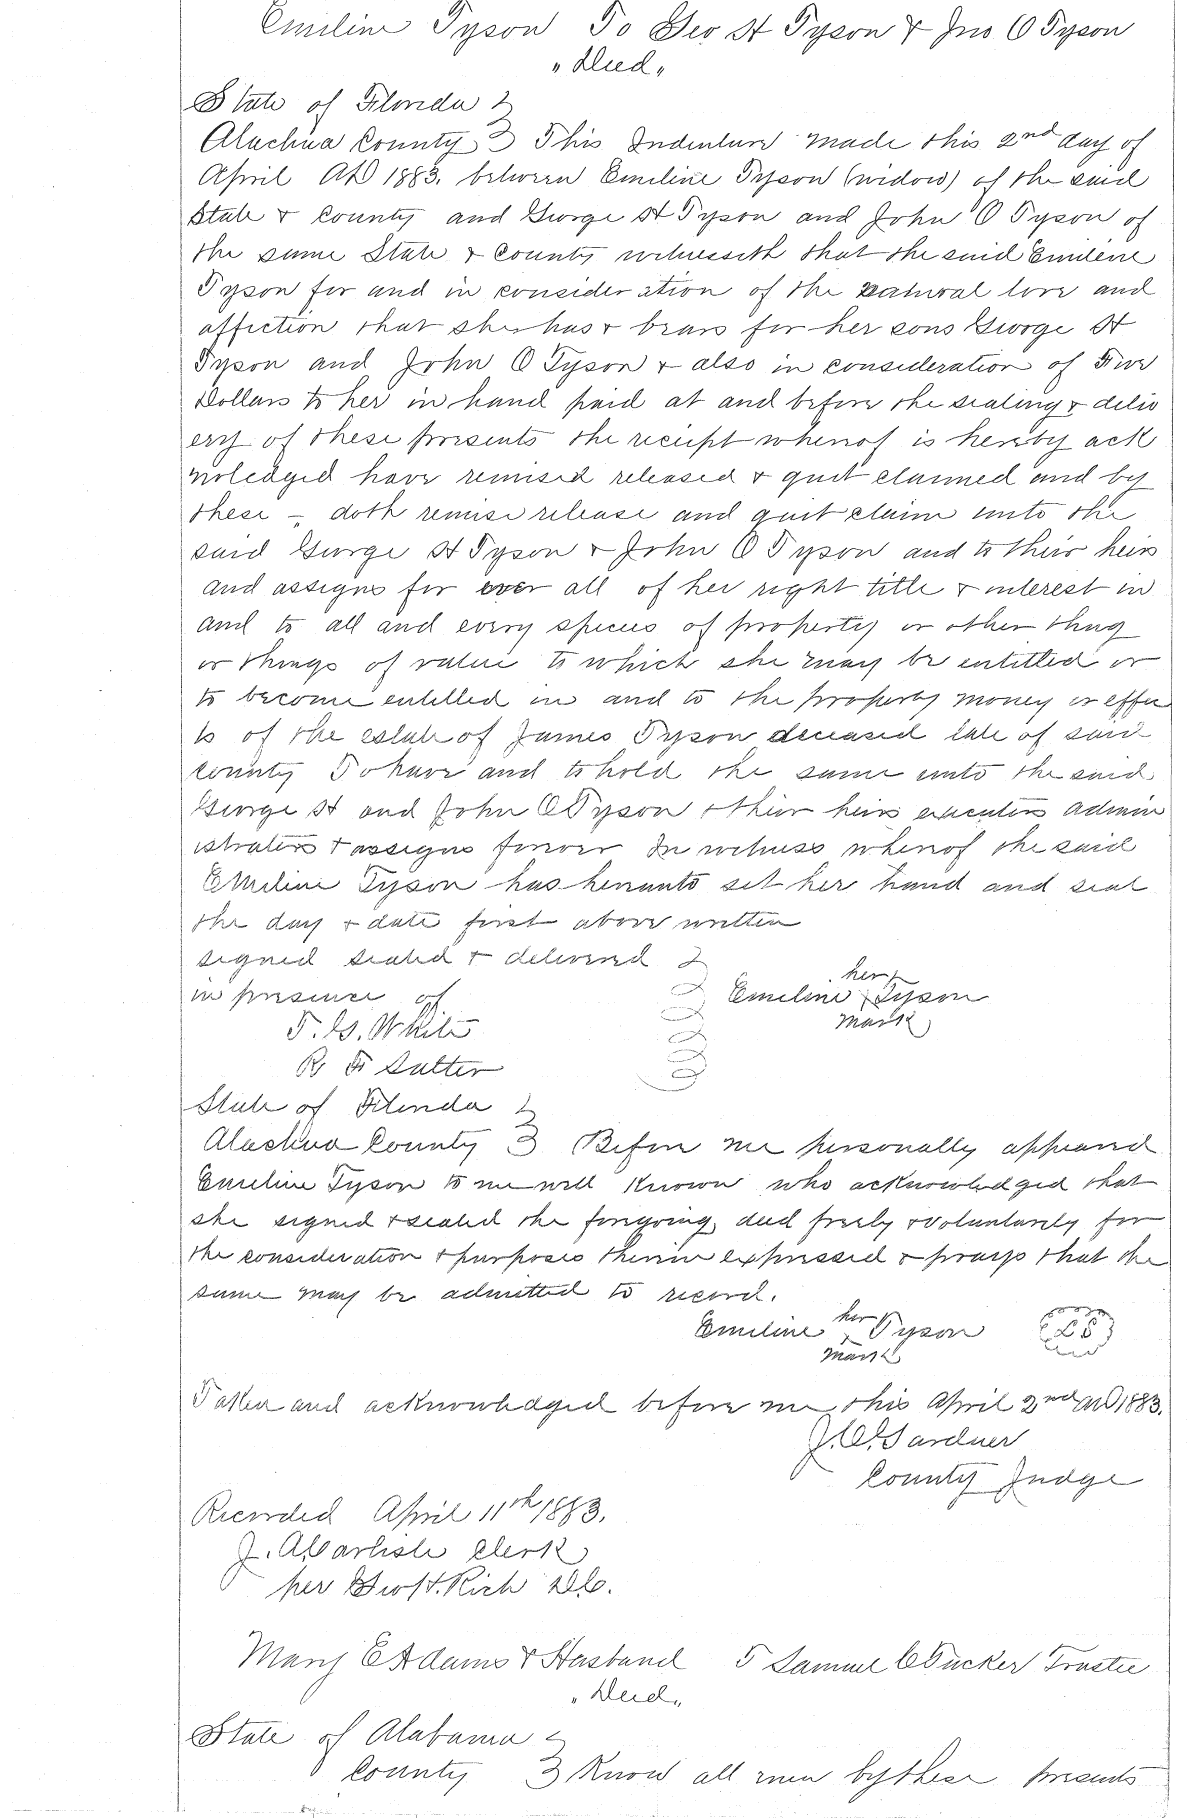 Emiline Tyson To Geo H Tyson & Jno O Tyson
"Deed"
State of Florida
Alachua County This Indenture made this 2nd day of
April AD 1883. between Emiline Tyson (widow) of the said
State & County and George H Tyson and John O Tyson of
the same State & County witnesseth that the said Emiline
Tyson for and in consideration of the natural love and
affection that she has & bears for her sons George H
Tyson and John O Tyson & also in consideration of Five
Dollars to her in hand paid at and before the sealing & deliv
ery of these presents the receipt whereof is hereby ack
noledged have remised released & quit claimed and by
these - doth remise release and quit claim unto the
said George H Tyson & John O Tyson and to their heirs
and assigns for ever all of her right title & interest in
and to all and every species of property or other thing
or things of value to which she may be entitled or
to become entitled in and to the property money or effec
ts of the estate of James Tyson deceased late of said
County To have and to hold the same unto the said
George H and John O Tyson & their heirs executors admin
istrators & assigns forever In witness whereof the said
Emiline Tyson has hereunto set her hand and seal
the day & date first above written
signed sealed & delivered
in presence of
her
Emiline x Tyson
mark
T. G. White
R F Salter
State of Florida
Alachua County Before me personally appeared
Emiline Tyson to me well known who acknowledged that
she signed & sealed the foregoing deed freely & voluntarily for
the consideration & purposes therein expressed & prays that the
same may be admitted to record.
her
Emiline x Tyson LS
mark
Taken and acknowledged before me this April 2nd AD 1883.
J. C. Gardner
County Judge
Recorded April 11th 1883.
J. A. Carlisle Clerk
per Geo H. Rich D.C.
Mary E Adams & Husband T Samuel C Tucker Trustee
"Deed"
State of Alabama
County Know all men by these presents